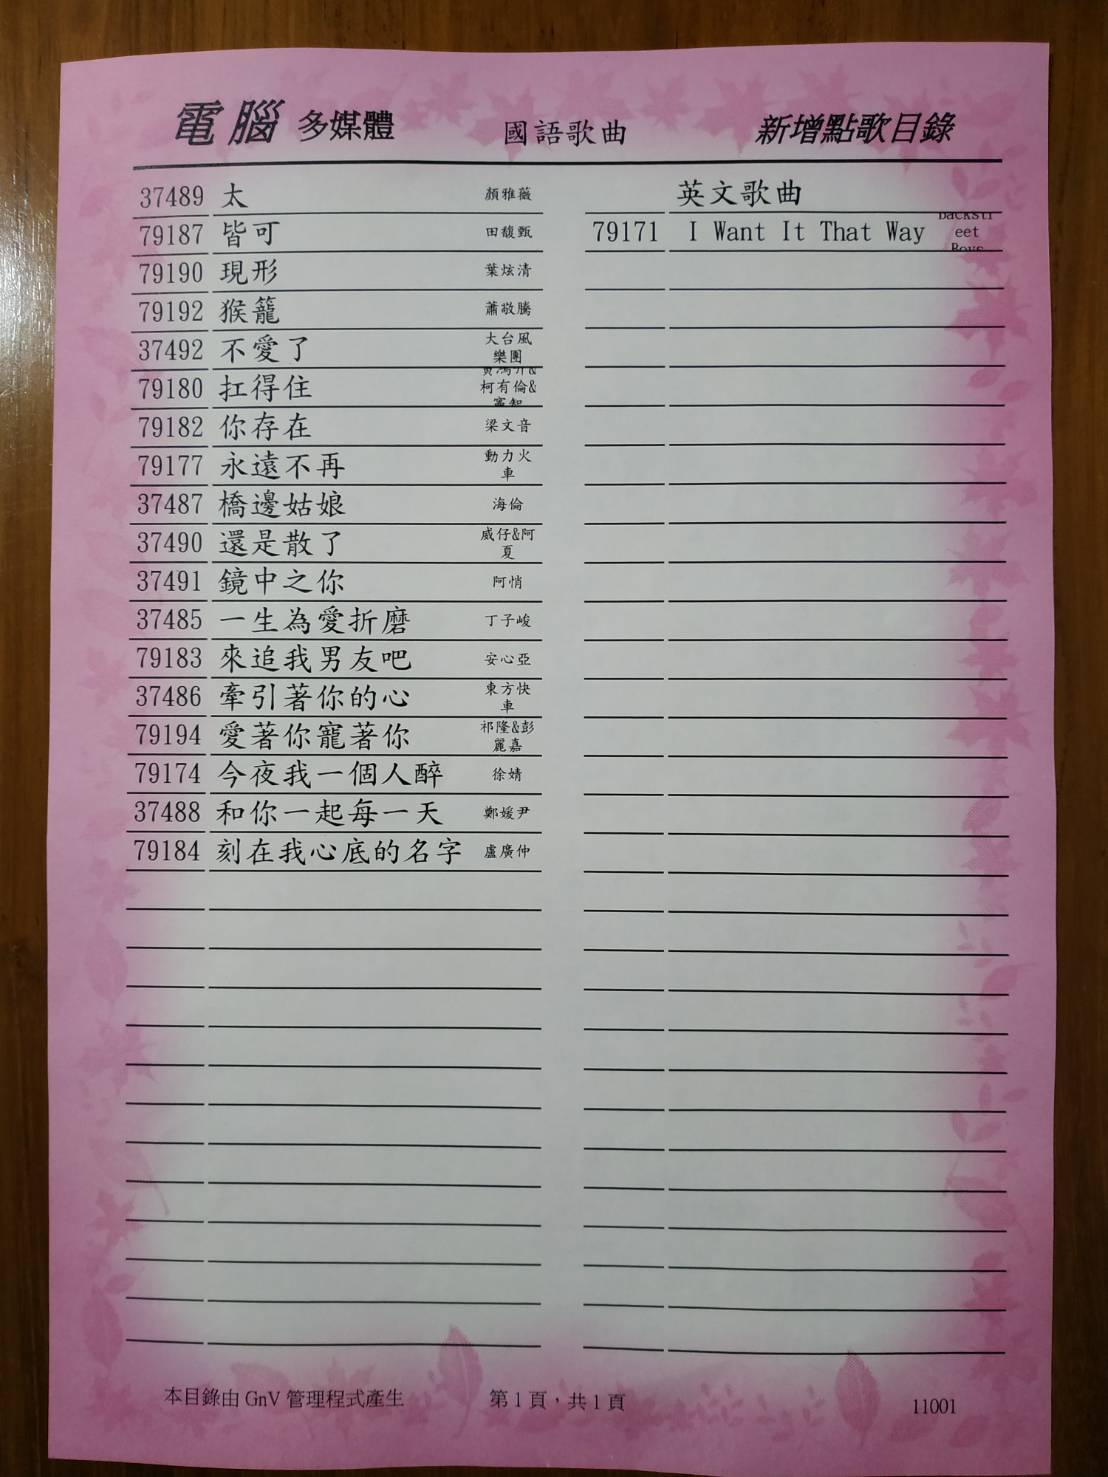 電腦 多媒體 國語歌曲 新增點歌目錄
37489 太 顏雅薇
79187 皆可 田馥甄
79190 現形 葉炫清
79192 猴籠 蕭敬騰
37492 不愛了 大台風
樂團
79180 扛得住
柯有倫&
79182 你存在 梁文音
79177 永遠不再 動力火
車
37487 橋邊姑娘 海倫
37490 還是散了 威仔&阿
夏
37491 鏡中之你 阿悄
37485 一生為愛折磨 丁子峻
79183 來追我男友吧 安心亞
37486 牽引著你的心 東方快
車
79194 愛著你寵著你 祁隆&彭
麗嘉
79174 今夜我一個人醉 徐婧
37488 和你一起每一天 鄭媛尹
79184 刻在我心底的名字 盧廣仲
英文歌曲
79171 I Want It That Way Backstr
eet
Boys
本目錄由 GnV 管理程式產生 第1頁，共1頁 11001